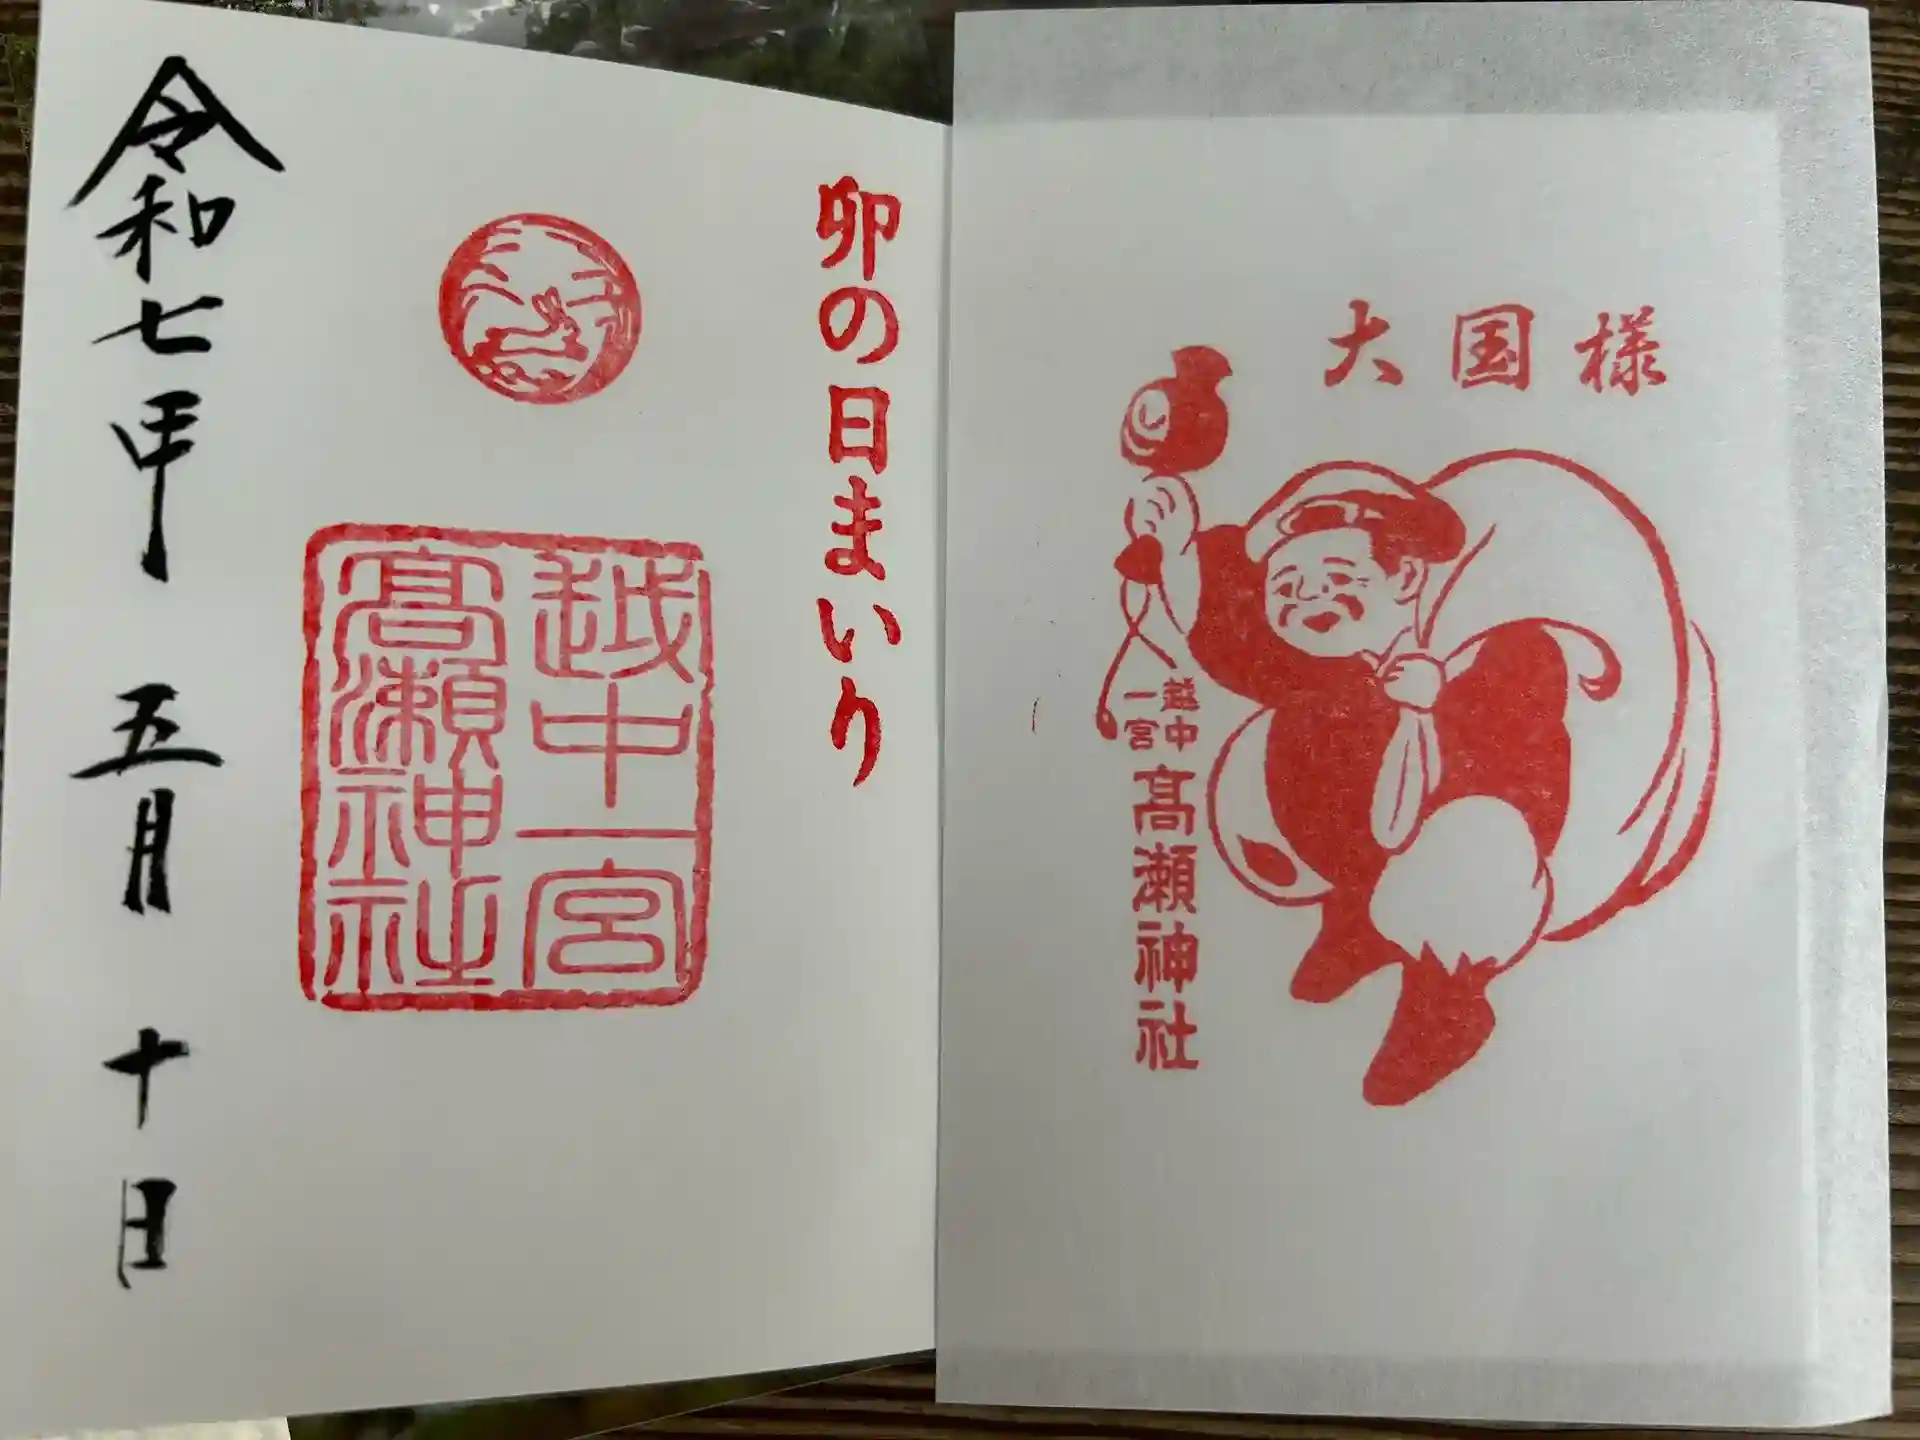 大国様
越中
一宮
高瀬神社
卯の日まいり
越中一宮
高瀬神社
令和七年 五月 十日